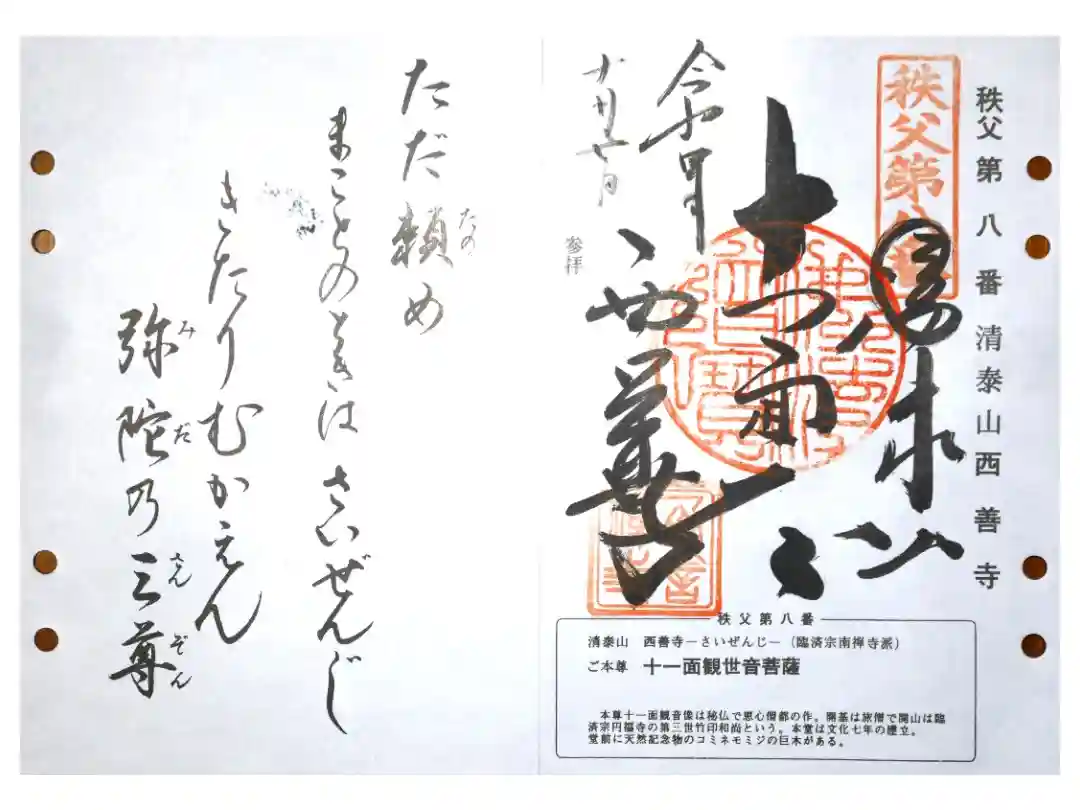 秩父第八番清泰山西善寺
秩父第八番
十一面
令和四年
参拝
西善寺
秩父第八番
清泰山 西善寺―さいぜんじ―（臨済宗南禅寺派）
ご本尊 十一面観世音菩薩
本尊十一面観音像は秘仏で恵心僧都の作。開基は旅僧で開山は臨
済宗円福寺の第三世竹印和尚という。本堂は文化七年の建立。
堂前に天然記念物のコミネモミジの巨木がある。
ただ頼め
たの
まことのときは さいぜんじ
きたりむかえん
弥陀の三尊
みだ さんぞん